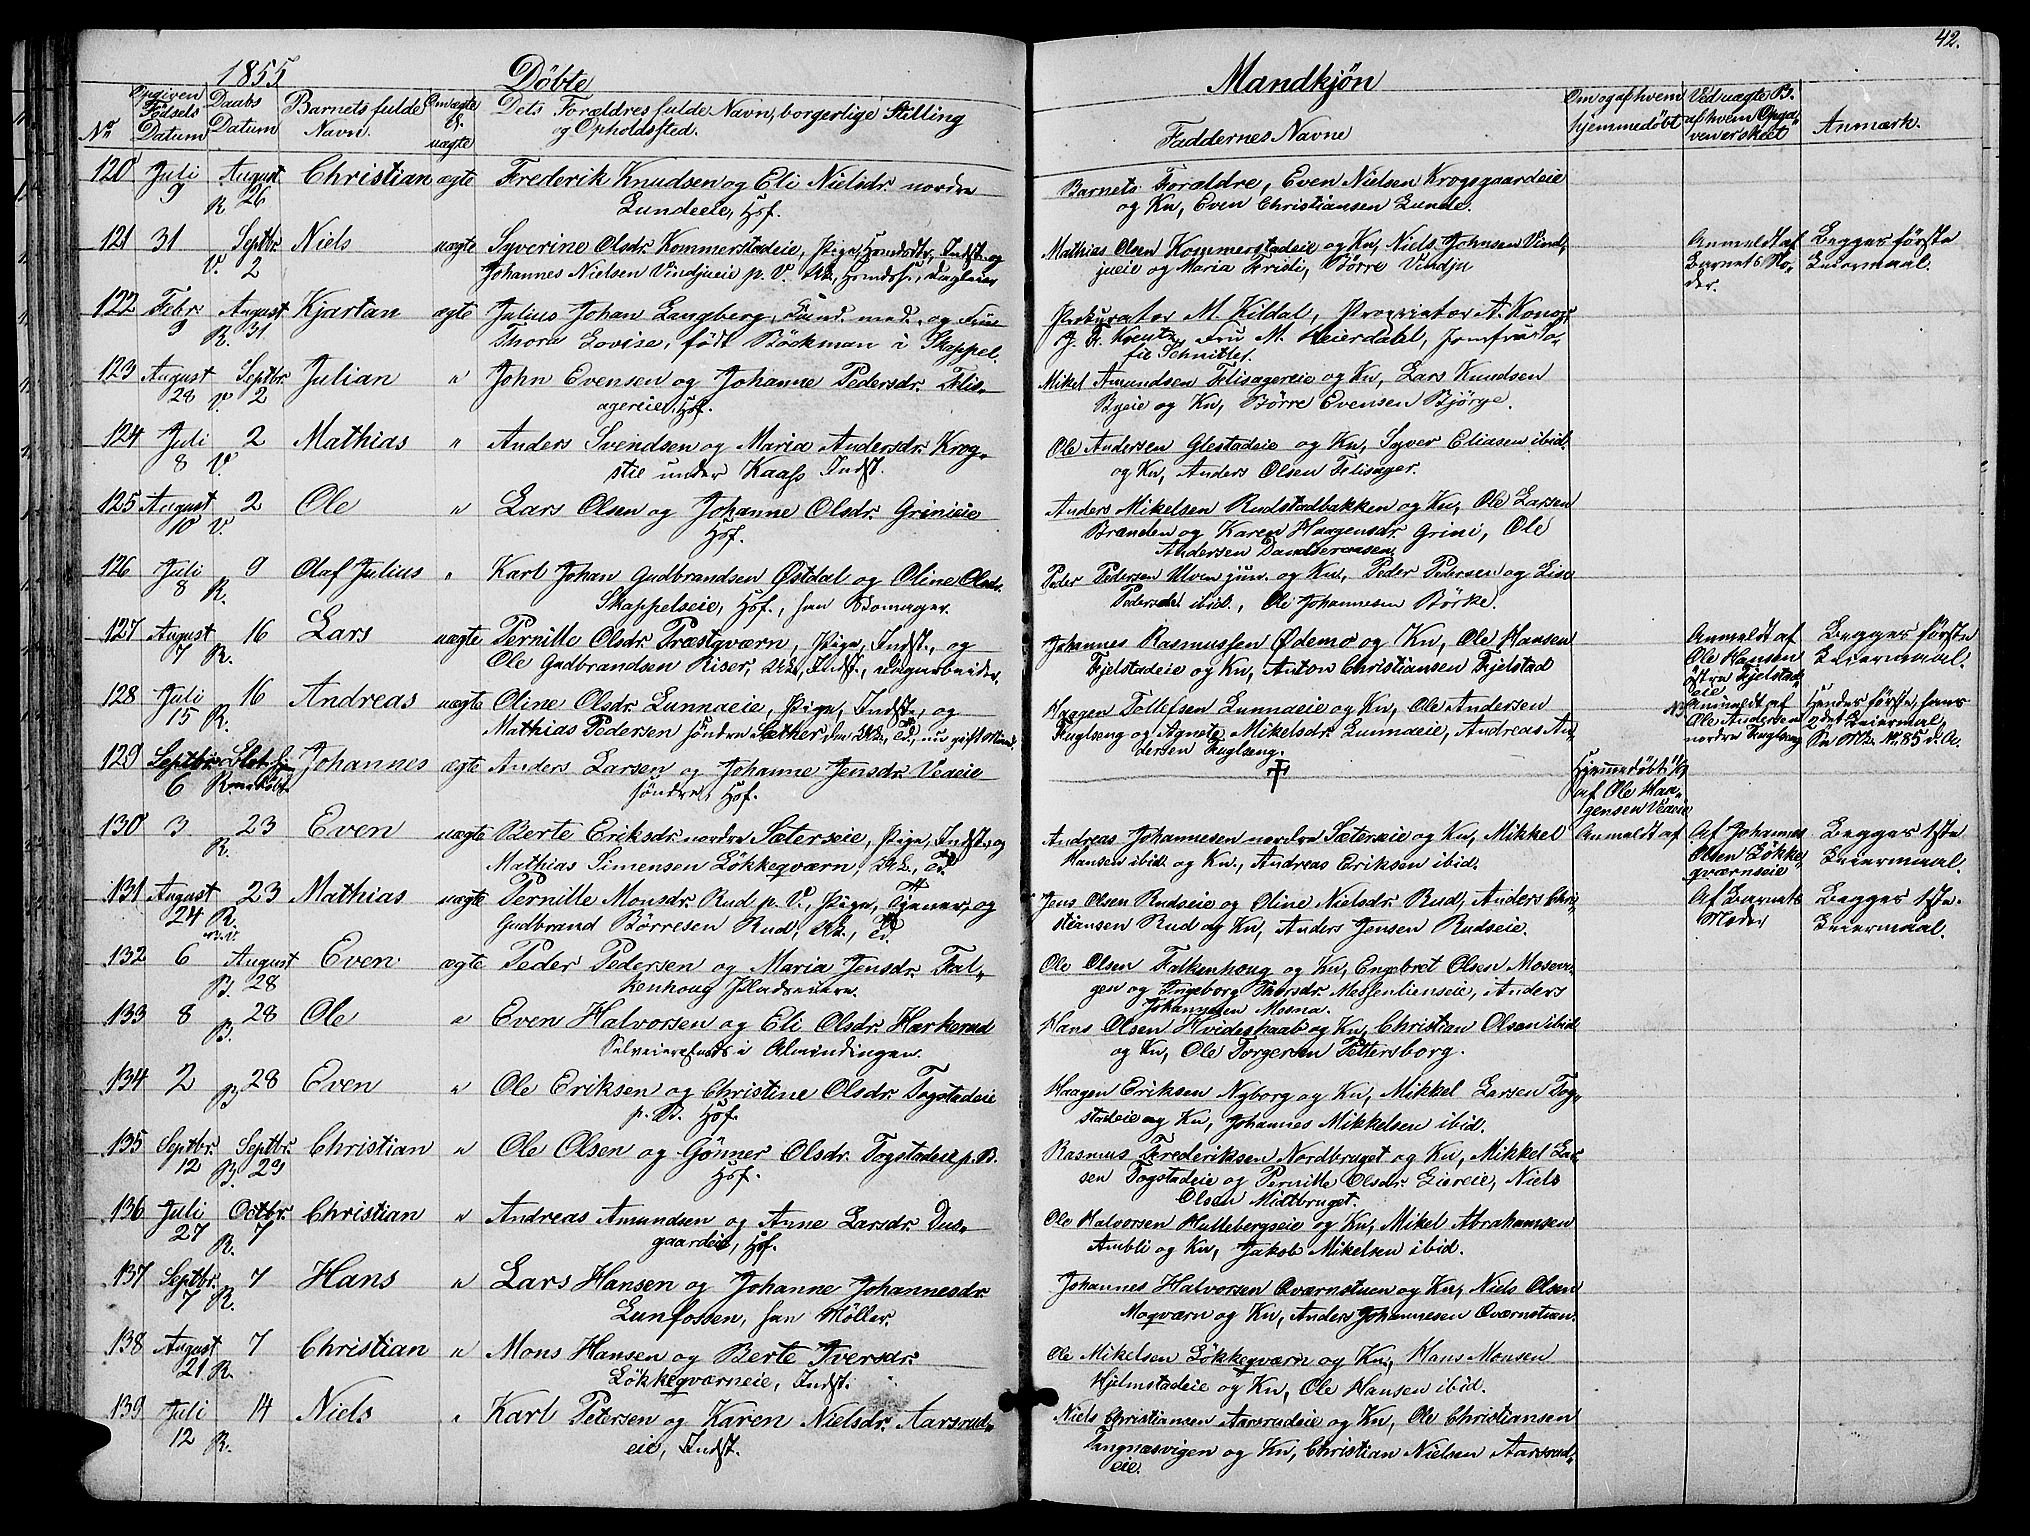 42.
1855
Döbte
Mandkjön
No
Opgiven Födsels Datum
Daabs Datum
Barnets fulde Navn.
Om ægte el. uægte
Dets Forældres fulde Navn, borgerlige Stilling og Opholdssted.
Faddernes Navne
Om og af hvem hjemmedöbt
Ved uægte B. af hvem Opgaven er skeet
Anmærk.
120 Juli August Christian ægte Frederik Knudsen og Eli Nielsdr. nordre
9 R. 26 Lundeeie, Hsf.
Barnets Forældre, Even Nielsen Krogsgaardeie
og Kn, Even Christiansen Lunde.
121 31 Septbr. Niels uægte Syverine Olsdr. Kommerstadeie, Pige, Indst. og
V. 2 Johannes Nielsen Vindjueie p. V.
Mathias Olsen Kommerstadeie og Kn, Niels Johnsen Vind-
jueie og Maria Börre Vindju
Anmeldt af Barnets Moder.
Begges förste Leiermaal.
122 Febr. August Kjartan ægte Julius Johan Langberg, med., og Frue
9 R. 31 Thora Lovise, født Böckman i Skappel.
Prokurator M. Kildal, Proprietær A.
Kreutz, Fru M. Heierdahl, Jomfru So-
fie Schnitler.
123 August Septbr. Julian " John Evensen og Johanne Pedersdr. Flis-
28 V. 2 agereie, Hsf.
Mikel Amundsen Flisagereie og Kn, Lars Knudsen
Byeie og Kn, Börre Evensen Björge.
124 Juli 2 Mathias " Anders Svendsen og Maria Andersdr. Krog-
8 V. stie under Kaass Indst.
Ole Andersen Glestadeie og Kn, Syver Eliasen ibid.
og Kn, Anders Olsen Flisager.
125 August 2 Ole " Lars Olsen og Johanne Olsdr. Grinieie
10 V. Hsf.
Anders Mikelsen Rudstadbakken og Kn, Ole Larsen
Brænden og Karen Haagensdr. Grini, Ole
Andersen
126 Juli 9 Olaf Julius " Karl Johan Gudbrandsen Østdal og Oline Olsdr.
8 R. Skappelseie, Hsf.,
Peder Pedersen Ulven jun. og Kn, Peder Pedersen og Lise
Pedersdr. ibid., Ole Johannesen Börke.
127 August 16 Lars uægte Pernille Olsdr. Præstqværn, Pige, Indst., og
7 R. Ole Gudbrandsen Riser, Indst., Dagarbeider.
Johannes Rasmussen Ødemo og Kn, Ole Hansen
Fjelstadeie og Kn, Anton Christiansen Fjelstad
Anmeldt af Ole Hansen østre Fjelstadeie
Begges förste Leiermaal.
128 Juli 16 Andreas uægte Oline Olsdr. Lunnaeie, Pige, Indst., og
15 R. Mathias Pedersen söndre Sæther,
Haagen Tollefsen Lunnaeie og Kn, Ole Andersen
Fuglseng og Agnete Mikelsdr. Lunnaeie, Andreas An-
dersen Fuglseng.
Anmeldt af Ole Andersen nordre Fuglseng
Hendes förste, hans 2det Leiermaal,
129 Septbr. Johannes ægte Anders Larsen og Johanne Jensdr. Veaeie
6 söndre, Hsf.
Hjemmedöbt af Ole Haagensen Veaeie
130 3 23 Even uægte Berte Eriksdr. nordre Sæterseie, Pige, Indst. og
R. Mathias Simensen Lökkeqværn,
Andreas Johannesen nordre Sæterseie og Kn, Mikkel
Hansen ibid. og Kn., Andreas Eriksen ibid.
Anmeldt af
Af Johannes Olsen Lökkeqværnseie
Begges 1ste Leiermaal.
131 August 23 Mathias uægte Pernille Monsdr. Rud p. V., Pige, Tjener, og
24 R. Gudbrand Börresen Rud,
Jens Olsen Rudseie og Oline Nielsdr. Rud, Anders Chri-
stiansen Rud og Kn, Anders Jensen Rudseie.
Af Barnets Moder
Begges 1ste Leiermaal.
132 6 August Even ægte Peder Pedersen og Maria Jensdr. Fal-
B. 28 kenhoug
Ole Olsen Falkenhoug og Kn, Engebret Olsen Mosevi-
gen og Ingeborg Thorsdr. Messenlienseie, Anders
Johannesen Mosna.
133 8 28 Ole " Even Halvorsen og Eli Olsdr. Harkerud
B. i Almindingen.
Hans Olsen Hvideskaab og Kn, Christian Olsen ibid.
og Kn, Ole Torgersen Pettersborg.
134 2 28 Even " Ole Eriksen og Christine Olsdr. Togstadeie
B. p. B. Hsf.
Haagen Eriksen Nyborg og Kn, Mikkel Larsen Tog-
stadeie og Kn, Johannes Mikkelsen ibid.
135 Septbr. Septbr. Christian " Ole Olsen og Gönner Olsdr. Togstadeie p. B.
12 B. 29 Hsf.
Rasmus Frederiksen Nordbruget og Kn, Mikkel Lar-
sen Togstadeie og Pernille Olsdr. Liereie, Niels
Olsen Midtbruget.
136 Juli Octbr. Christian " Andreas Amundsen og Anne Larsdr. Dus-
27 R. 7 gaardeie, Hsf.
Ole Halvorsen Hullebergseie og Kn, Mikel Abrahamsen
Ambli og Kn, Jakob Mikelsen ibid.
137 Septbr. 7 Hans " Lars Hansen og Johanne Johannesdr.
7 R. Lunfossen, han Möller.
Johannes Halvorsen Qværnstuen og Kn, Niels Olsen
Moqværn og Kn, Anders Johannesen Qværnstuen.
138 August 7 Christian " Mons Hansen og Berte Iversdr.
21 R. Lökkeqværneie, Indst.
Ole Mikelsen Lökkeqværn og Kn, Hans Monsen
Hjelmstadeie og Kn, Ole Hansen ibid.
139 Juli 14 Niels " Karl Petersen og Karen Nielsdr. Aarsrud-
12 R. eie, Indst.
Niels Christiansen Aarsrudeie og Kn, Ole Christiansen
Tangnæsvigen og Kn, Christian Nielsen Aarsrud-
eie.